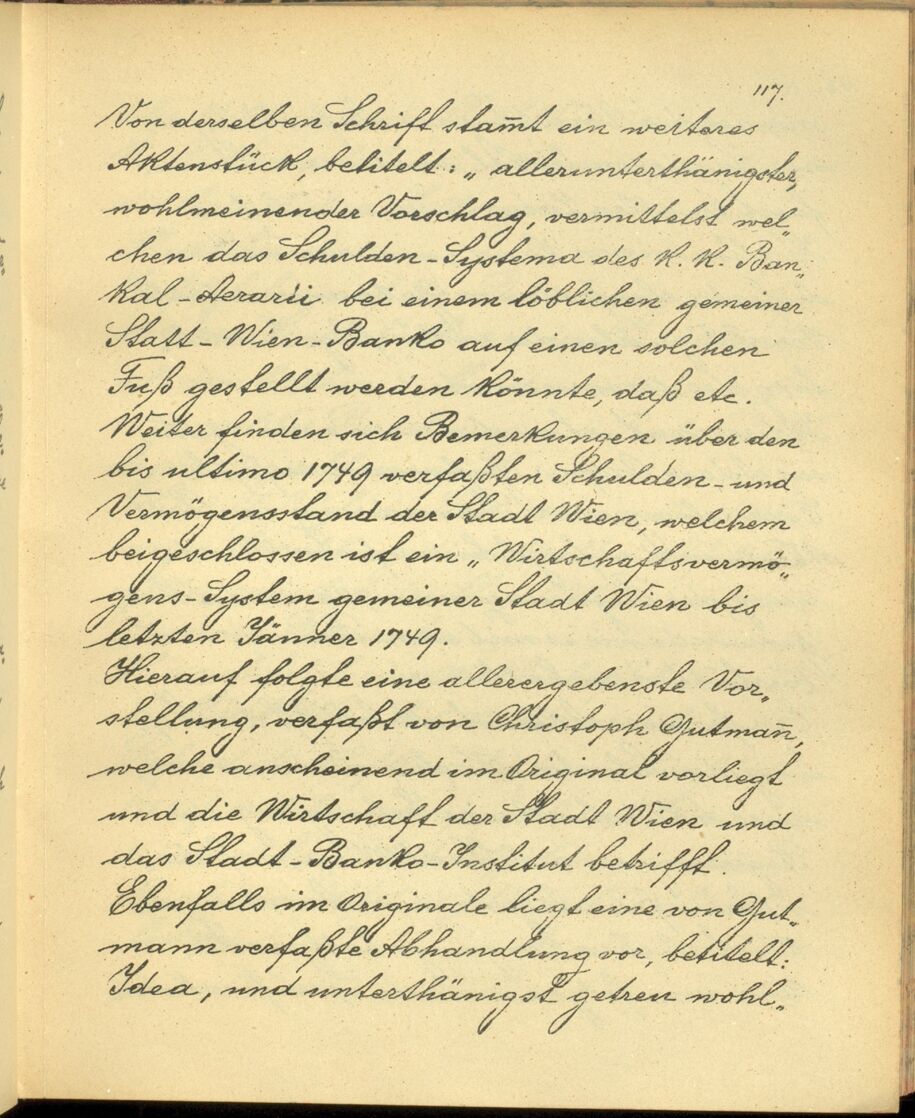 117.
Von derselben Schrift stam̅t ein weiteres
Aktenstück, betitelt: „ allerunterthänigster,
wohlmeinender Vorschlag, vermittelst wel„
chen das Schulden-Systema des K. K. Ban„
kal-Aerarii bei einem löblichen gemeiner
Statt-Wien-Banko auf einen solchen
Fuß gestellt werden könnte, daß etc.
Weiter finden sich Bemerkungen über den
bis ultimo 1749 verfaßten Schulden- und
Vermögensstand der Stadt Wien, welchem
beigeschlossen ist ein „ Wirtschaftsvermö„
gens-System gemeiner Stadt Wien bis
letzten Jänner 1749.
Hierauf folgte eine allerergebenste Vor„
stellung, verfaßt von Christoph Gutman̅,
welche anscheinend im Original vorliegt
und die Wirtschaft der Stadt Wien und
das Stadt-Banko-Institut betrifft.
Ebenfalls im Originale liegt eine von Gut„
mann verfaßte Abhandlung vor, betitelt:
Idea, und unterthänigst getreu wohl„